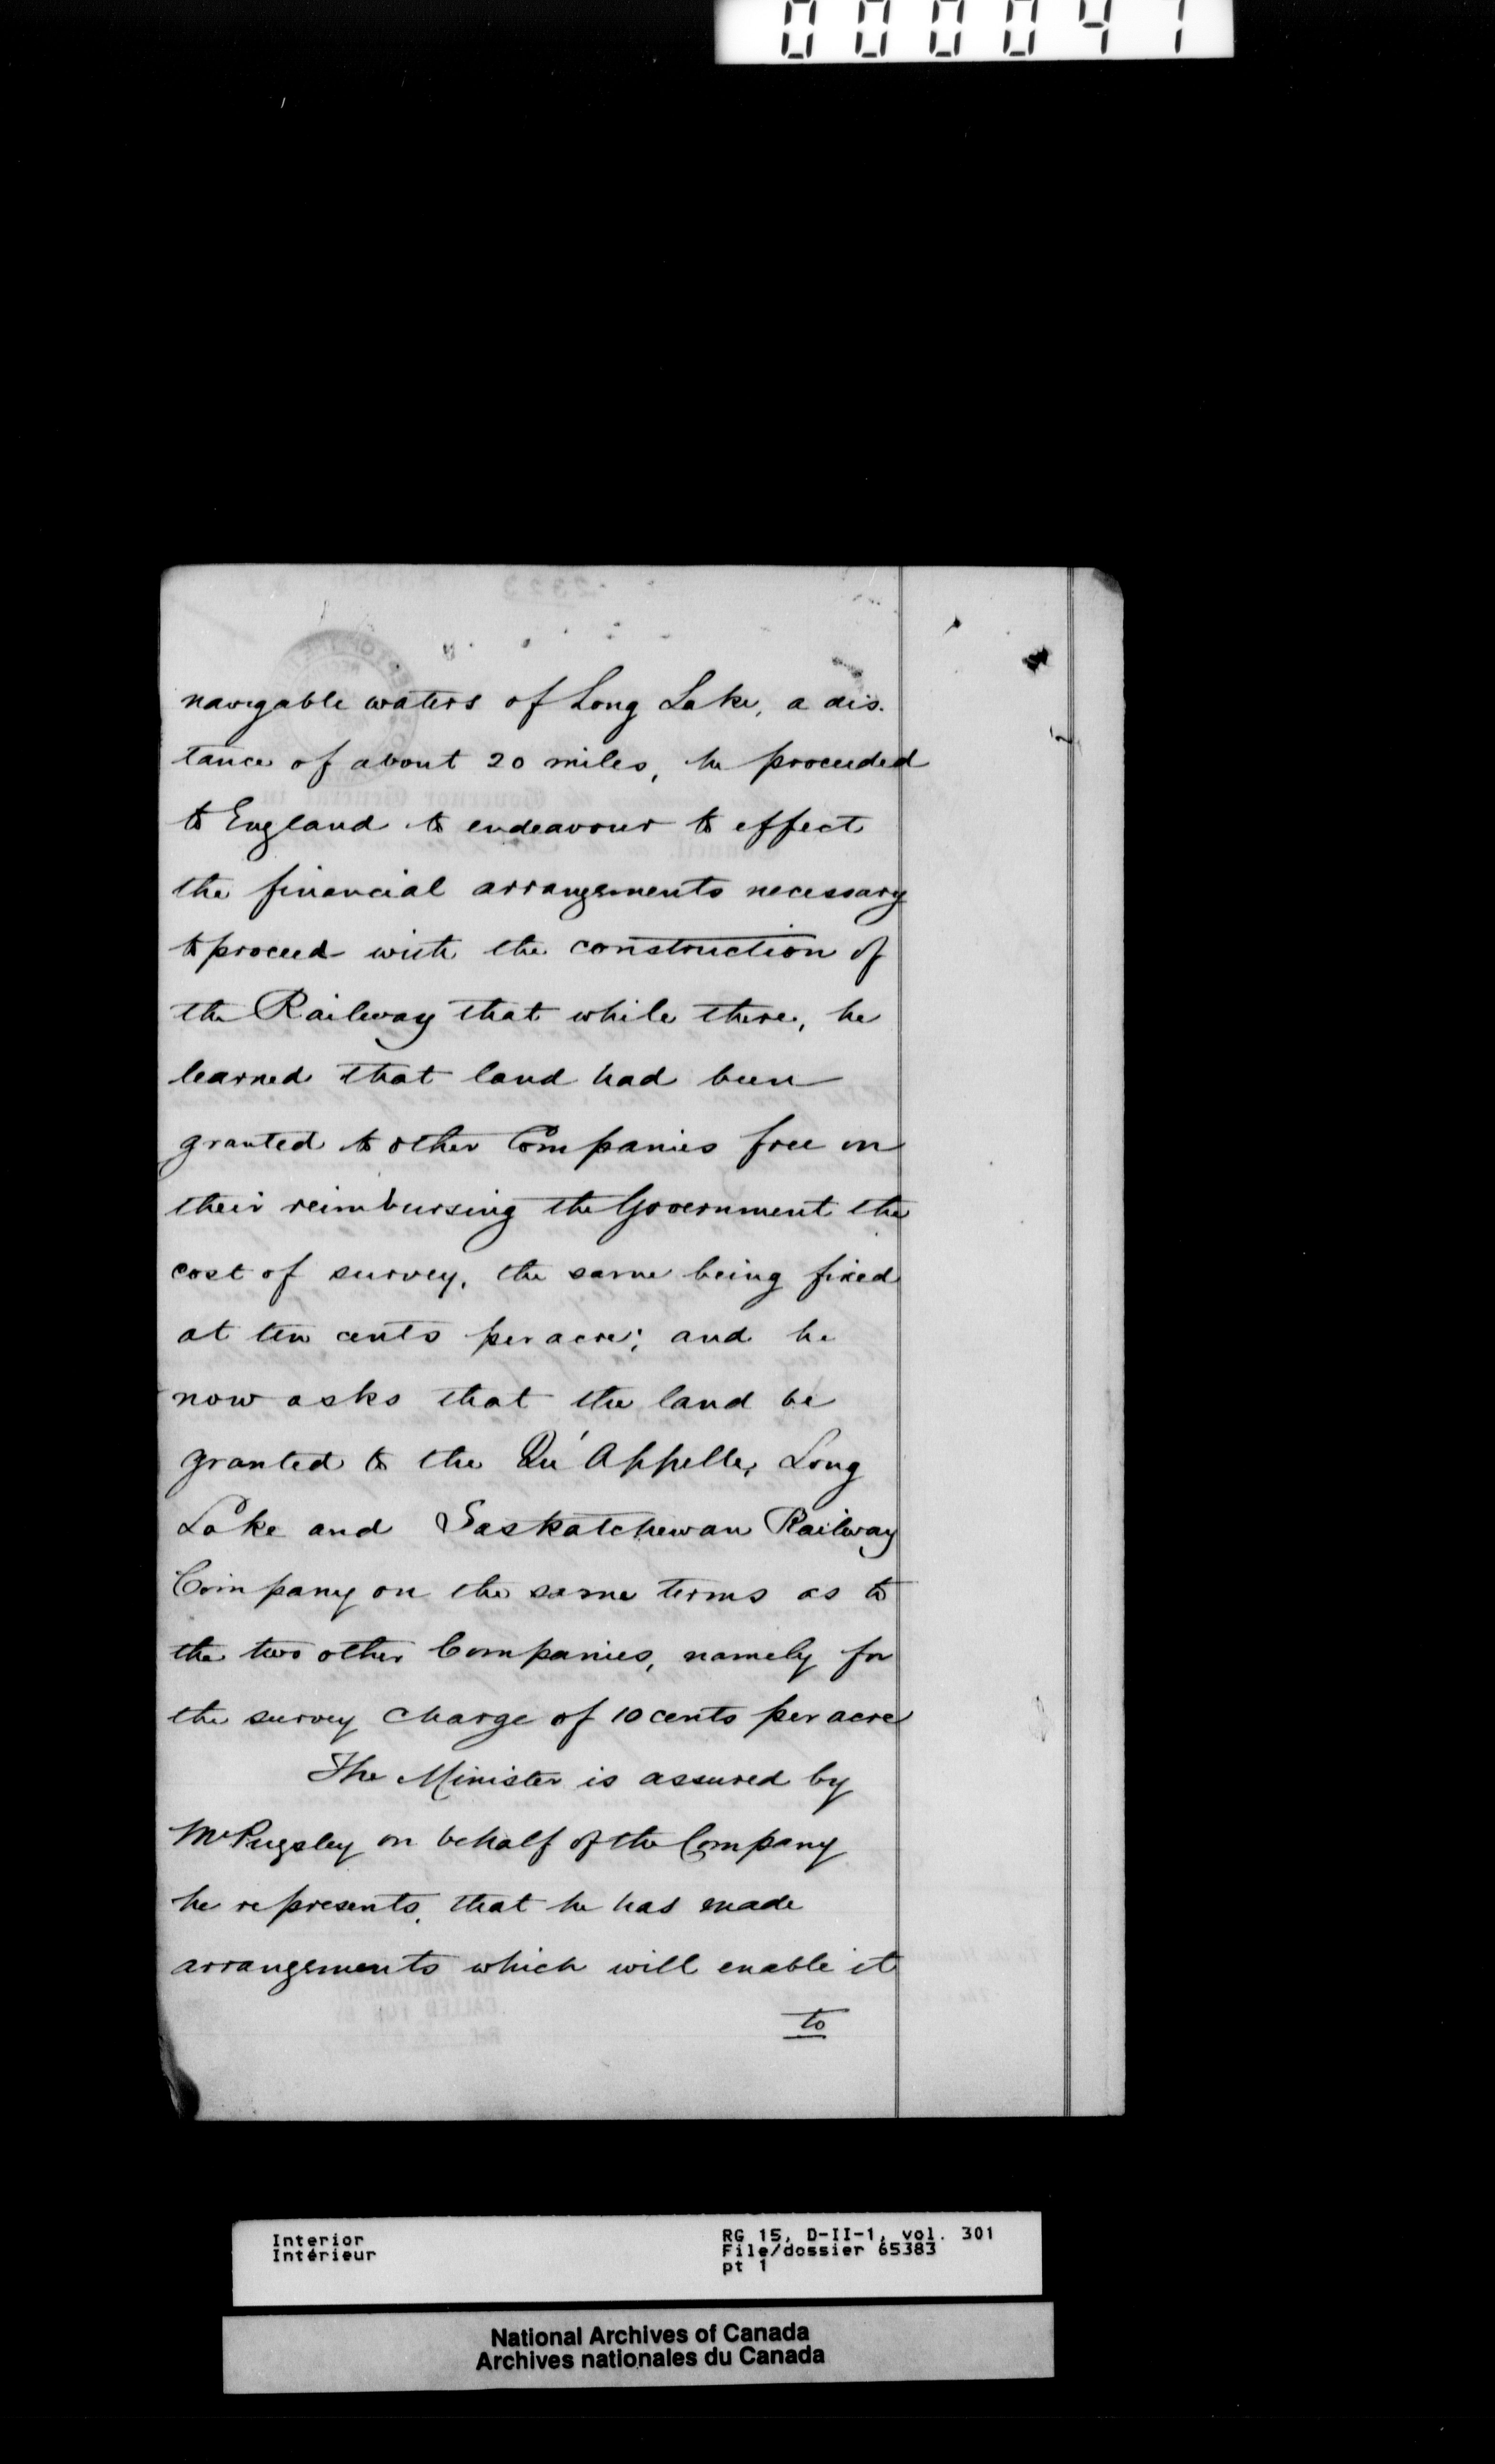 000047
navigable waters of Long Lake, a dis-
tance of about 20 miles, he proceeded
to England to endeavour to effect
the financial arrangements necessary
to proceed with the construction of
the Railway that while there, he
learned that land had been
granted to other Companies free on
their reimbursing the Government the
cost of survey, the same being fixed
at ten cents per acre; and he
now asks that the land be
granted to the Qu'Appelle, Long
Lake and Saskatchewan Railway
Company on the same terms as to
the two other Companies, namely for
the survey charge of 10 cents per acre
The Minister is assured by
Mr Pugsley on behalf of the Company
he represents, that he has made
arrangements which will enable it
to
Interior
Intérieur
RG 15, D-II-1, vol. 301
File/dossier 65383
pt 1
National Archives of Canada
Archives nationales du Canada